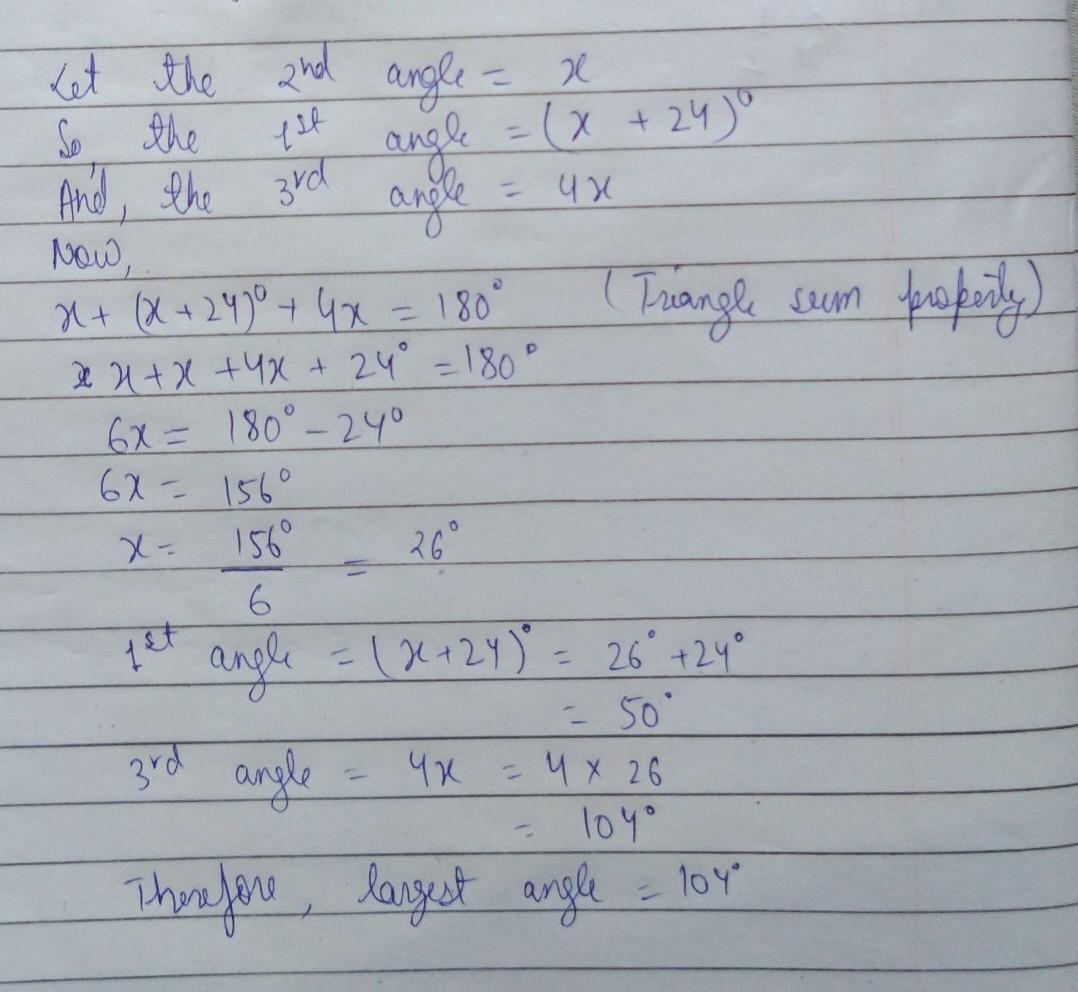 Let the 2nd angle = x
So, the 1st angle = (x + 24)°
And, the 3rd angle = 4x
Now,
x + (x + 24)° + 4x = 180° (Triangle sum property)
x + x + 4x + 24° = 180°
6x = 180° - 24°
6x = 156°
x = 156°/6 = 26°
1st angle = (x+24)° = 26° + 24°
= 50°
3rd angle = 4x = 4 × 26
= 104°
Therefore, largest angle = 104°